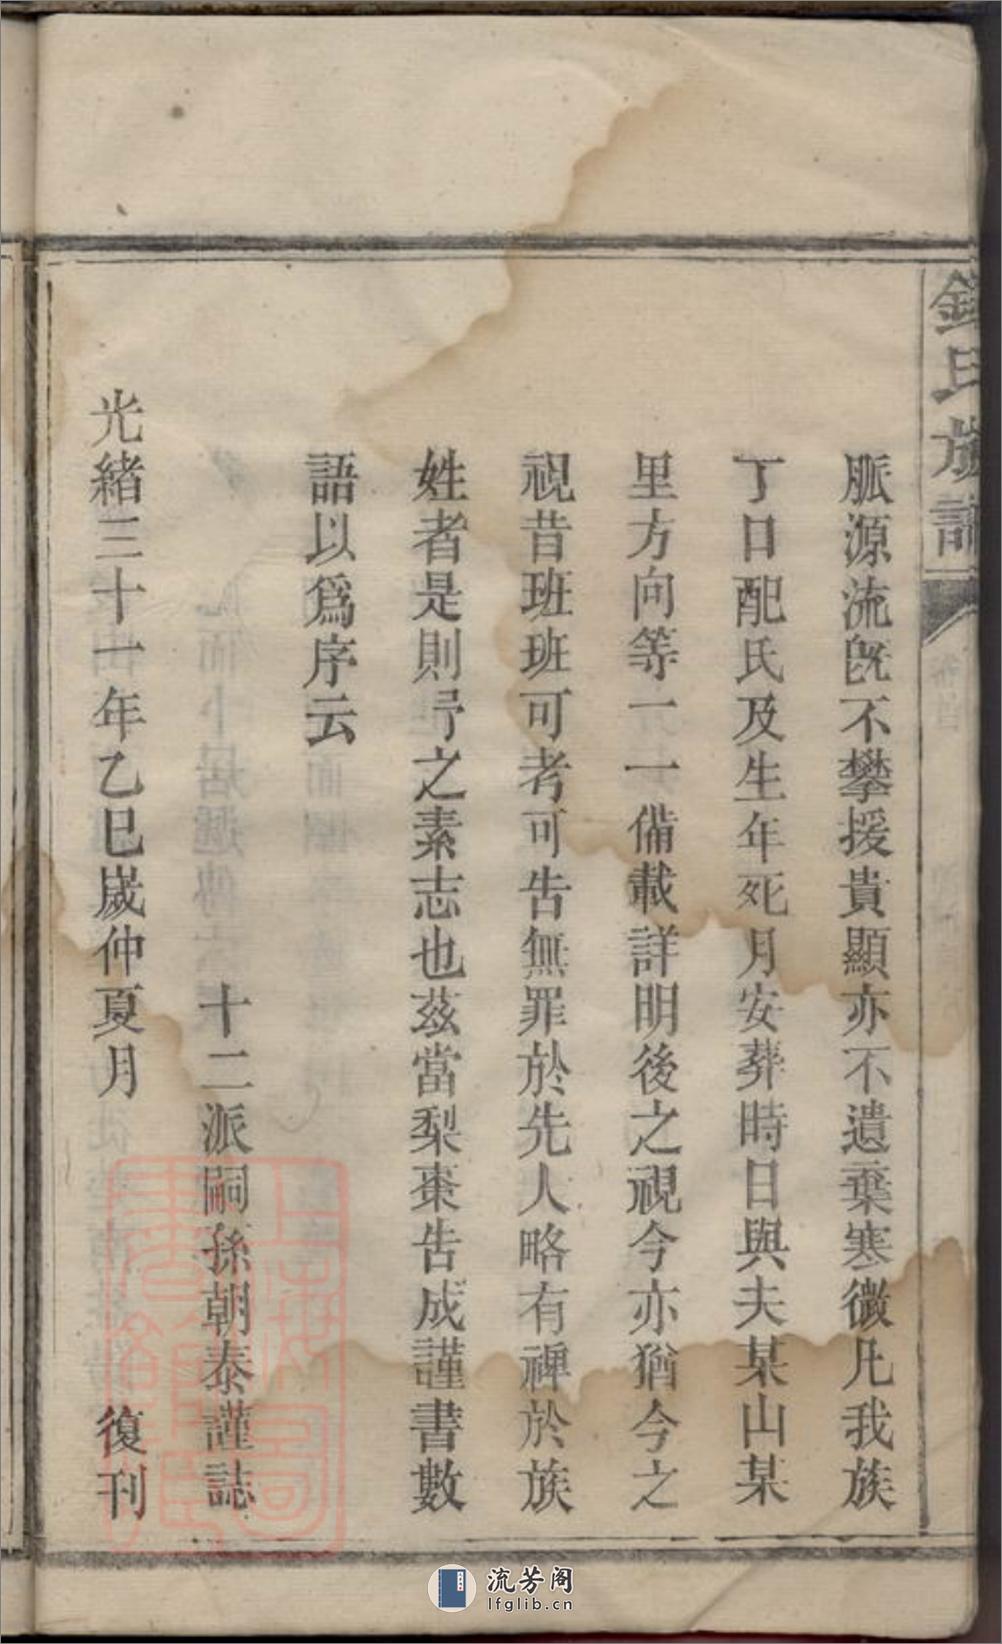 氏族譜
卷首
脈源流旣不攀援貴顯亦不遺棄寒微凡我族
丁口配氏及生年死月安葬時日與夫某山某
里方向等一一備載詳明後之視今亦猶今之
視昔班班可考可告無罪於先人略有裨於族
姓者是則予之素志也茲當梨棗告成謹書數
語以爲序云
十二派嗣孫朝泰謹誌
光緒三十一年乙巳嵗仲夏月 復刊
上海圖書館藏
流芳阁
lfglib.cn